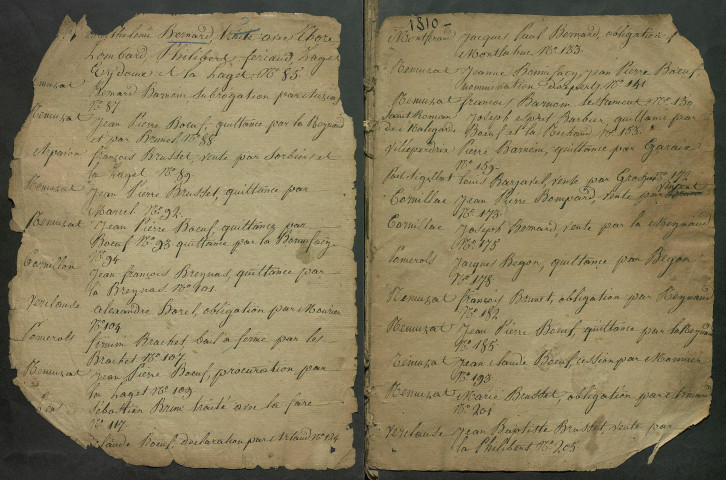 Bernard, traité avec Thore
Lombard, Philibert, feraud, Laget
Eydoux et la Laget, N.o 85
Remuzat Leonard Barnoin subrogation par
N.o 87
Remuzat Jean Pierre Boeuf, quittance par la Reynaud
et par Brunel N.o 88
Alpaion françois Brusset, vente par Sorbier et
la Laget N.o 89
Remuzat Jean Pierre Brusset, quittance par
Marrel N.o 92
Remuzat Jean Pierre Boeuf, quittance par
Boeuf N.o 93 quittance par la Bonnefacy
N.o 94
Cornillon Jean françois Breynat, quittance par
la Breynat N.o 101
Verclause Alexandre Borel, obligation par Mourier
N.o 104
Pomerols firmin Brachet bail a ferme par les
Brachet N.o 107
Remuzat Jean Pierre Boeuf, procuration par
la Laget N.o 109
Sebastien Brun traité avec la fare
N.o 117
Claude Boeuf, declaration par N.o 124
1810
Montferrand Jacques Paul Bernard, obligation p.r
Montlahuc N.o 133
Remuzat Jeanne Bonnefacy, Jean Pierre Boeuf
nomination d'experts N.o 141
Remuzat francois Barnoin, N.o 150
Saint Roman Joseph esprit Barbier, quittance par
de Malegarde Boeuf et la N.o 153
Villeperdrix Pierre Barnoin, quittance par Garaix
N.o 159
Louis Barjavel, vente par N.o 172
Cornillac Jean Pierre Bompard, vente par Vincent
N.o 173
Cornillac Joseph Bernard, vente par la Reynaud
N.o 175
Pomerols Jacques Begon, quittance par Begon
N.o 178
Remuzat françois Brunet, obligation par Reynaud
N.o 182
Remuzat Jean Pierre Boeuf, quittance par la Reynaud
N.o 185
Remuzat Jean Claude Boeuf, cession par
N.o 193
Remuzat Marie Brusset, obligation par
N.o 201
Verclause Jean Baptiste Brusset, vente par
la Philibert N.o 205